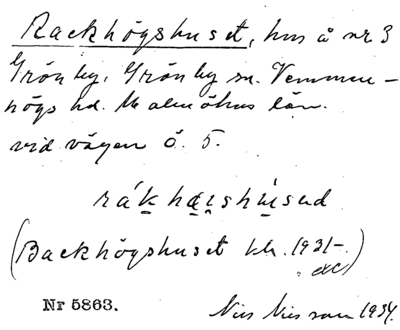 Rackhögshuset, hus å nr 3
Grönby, Grönby sn. Vemmen-
högs hd. Malmöhus län.
vid vägen ö. 5.
(Backhögshuset kk. 1931-.)
exc.
Nr 5863.
Nils Nilsson 1934.